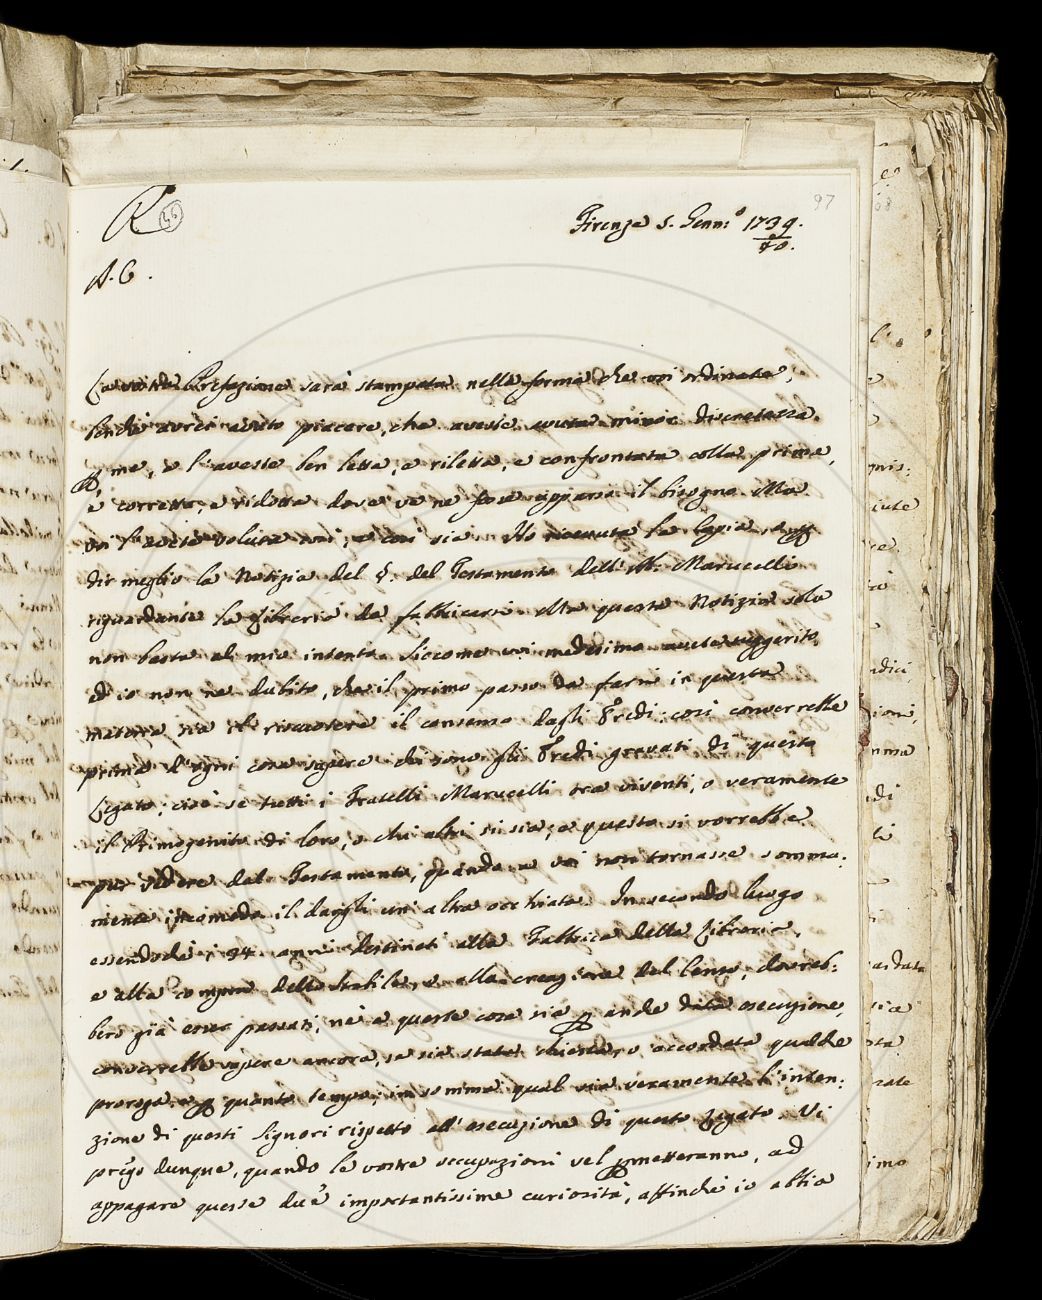 R 46
97
Firenze 5. Genn:o 1739.
40.
A. C.
La vostra Prefazione sarà stampata nella forma che voi ordinate,
benchè avrei avuto piacere, che aveste avuta minor discretezza
p me, e l'aveste ben letta, e riletta, e confrontata colla prima,
e corretta, e ridotta dove ve ne fosse apparso il bisogno. Ma
voi l'avete voluta così, e così sia. Ho ricevuta la Copia, o p
dir meglio la Notizia del §. del Testamento dell' Ab. Marucelli
riguardante la Libreria da fabbricarsi. Ma questa Notizia sola
non basta al mio intento. Siccome voi medesimo avete suggerito,
ed io non ne dubito, che il primo passo da farsi in questa
materia sia il riscuotere il consenso dagli Eredi; così converrebbe
prima d'ogni cosa sapere chi sono gli Eredi gravati di questo
Legato; cioè se tutti i Fratelli Marucelli ora viventi, o veramente
il Primogenito di loro, o chi altri si sia; e questo si vorrebbe
pur vedere dal Testamento, quando a voi non tornasse somma:
mente incomodo il dargli un' altra occhiata. In secondo luogo
essendochè i 24. anni destinati alla Fabbrica della Libreria,
e alla compra dello stabile, e alla creazione del Censo, dovreb:
bero già esser passati, nè a queste cose sia p anche data esecuzione,
converrebbe sapere ancora, se sia stata chiesta, o accordata qualche
proroga, e p quanto tempo; in somma qual sia veramente l'inten:
zione di questi Signori rispetto all' esecuzione di questo Legato. Vi
prego dunque, quando le vostre occupazioni vel pmetteranno, ad
appagare queste due importantissime curiosità, affinchè io abbia